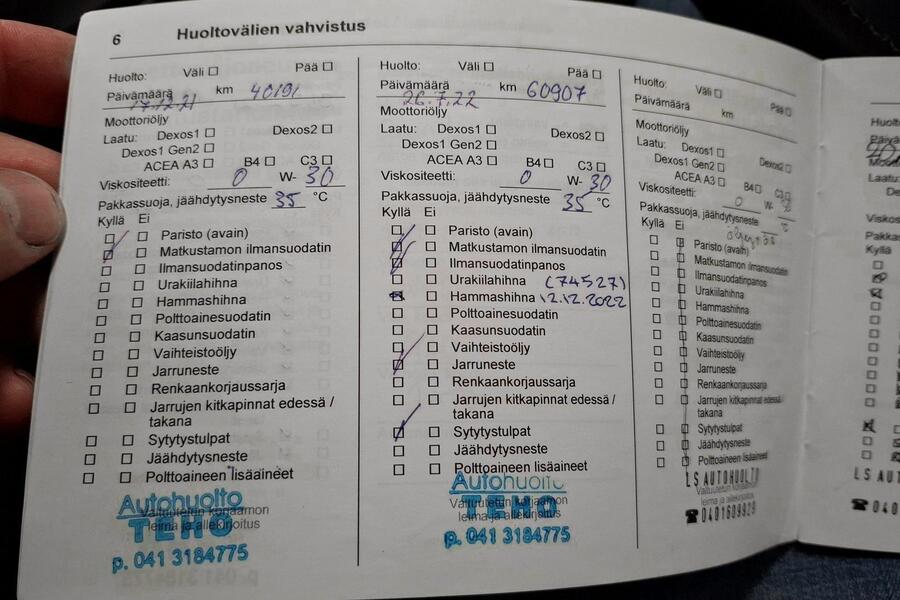 6 Huoltovälien vahvistus
Huolto: Väli Pää
Päivämäärä 17.12.21 km 40191
Moottoriöljy
Laatu: Dexos1 Dexos2
Dexos1 Gen2
ACEA A3 B4 C3
Viskositeetti: 0 W- 30
Pakkassuoja, jäähdytysneste 35 °C
Kyllä Ei
Paristo (avain)
Matkustamon ilmansuodatin
Ilmansuodatinpanos
Urakiilahihna
Hammashihna
Polttoainesuodatin
Kaasunsuodatin
Vaihteistoöljy
Jarruneste
Renkaankorjaussarja
Jarrujen kitkapinnat edessä /
takana
Sytytystulpat
Jäähdytysneste
Polttoaineen lisäaineet
Autohuolto
Valtuutetun korjaamon
leima ja allekirjoitus
TEHO
p. 041 3184775
Huolto: Väli Pää
Päivämäärä 26.7.22 km 60907
Moottoriöljy
Laatu: Dexos1 Dexos2
Dexos1 Gen2
ACEA A3 B4 C3
Viskositeetti: 0 W- 30
Pakkassuoja, jäähdytysneste 35 °C
Kyllä Ei
Paristo (avain)
Matkustamon ilmansuodatin
Ilmansuodatinpanos
Urakiilahihna (74527)
Hammashihna 12.12.2022
Polttoainesuodatin
Kaasunsuodatin
Vaihteistoöljy
Jarruneste
Renkaankorjaussarja
Jarrujen kitkapinnat edessä /
takana
Sytytystulpat
Jäähdytysneste
Polttoaineen lisäaineet
Autohuolto
Valtuutetun korjaamon
leima ja allekirjoitus
TEHO
p. 041 3184775
Huolto: Väli Pää
Päivämäärä km
Moottoriöljy
Laatu: Dexos1 Dexos2
Dexos1 Gen2
ACEA A3 B4 C3
Viskositeetti: 0 W-
Pakkassuoja, jäähdytysneste °C
Kyllä Ei
Paristo (avain)
Matkustamon ilmansuodatin
Ilmansuodatinpanos
Urakiilahihna
Hammashihna
Polttoainesuodatin
Kaasunsuodatin
Vaihteistoöljy
Jarruneste
Renkaankorjaussarja
Jarrujen kitkapinnat edessä /
takana
Sytytystulpat
Jäähdytysneste
Polttoaineen lisäaineet
LS AUTOHUOLTO
Valtuutetun korjaamon
leima ja allekirjoitus
0401609929